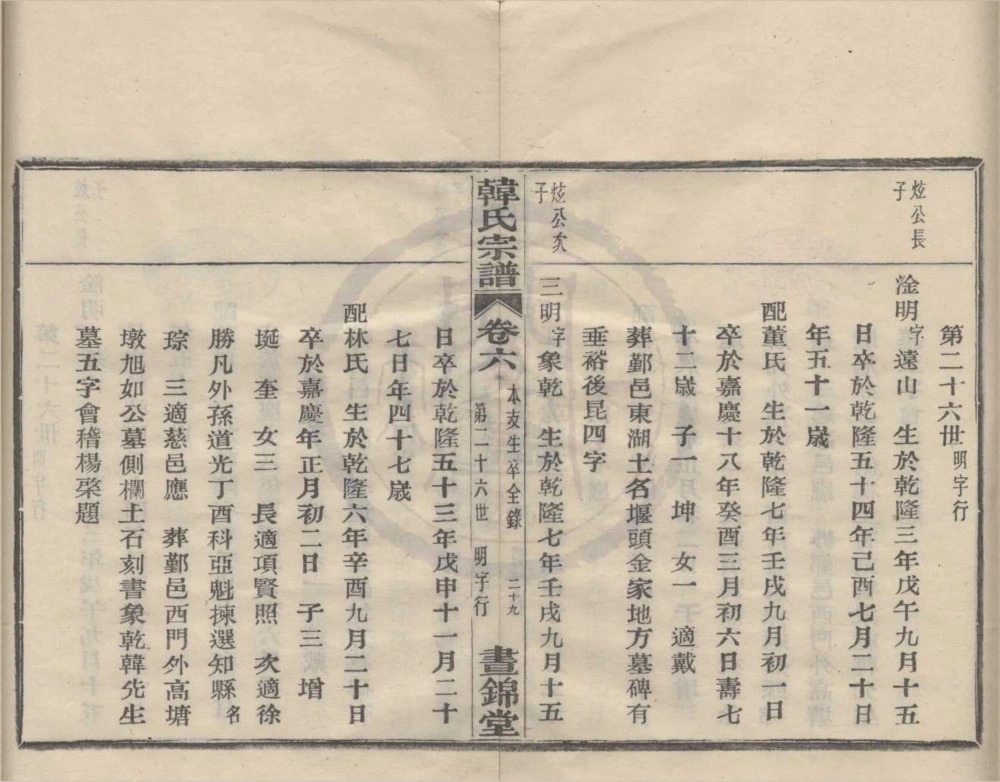 第二十六世明字行
炫公長子
淦明字遠山　生於乾隆三年戊午九月十五
日卒於乾隆五十四年己酉七月二十日
年五十一歲
配董氏　生於乾隆七年壬戌九月初一日
卒於嘉慶十八年癸酉三月初六日壽七
十二歲　子一　坤　女一　于適戴
葬鄞邑東湖土名堰頭金家地方墓碑有
垂裕後昆四字
炫公次子
三明字象乾　生於乾隆七年壬戌九月十五
韓氏宗譜　卷六　本支生卒全錄　第二十六世　明字行　二十九　晝錦堂
日卒於乾隆五十三年戊申十一月二十
七日年四十七歲
配林氏　生於乾隆六年辛酉九月二十日
卒於嘉慶年正月初二日　子三　增
埏　奎　女三　長適項賢照　次適徐
勝凡外孫道光丁酉科亞魁揀選知縣名
琮　三適慈邑應　葬鄞邑西門外高塘
墩旭如公墓側欄土石刻書象乾韓先生
墓五字會稽楊棨題